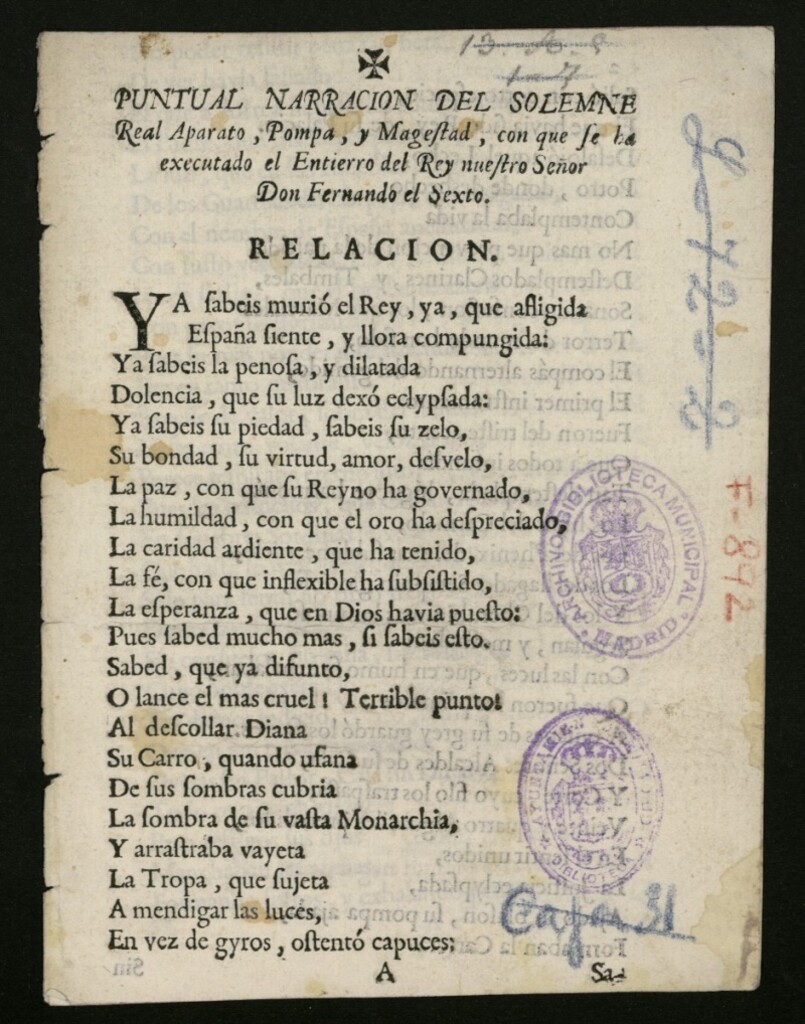 PUNTUAL NARRACION DEL SOLEMNE
Real Aparato, Pompa, y Mageſtad, con que ſe ha
executado el Entierro del Rey nueſtro Señor
Don Fernando el Sexto.
RELACION.
YA ſabeis murió el Rey, ya, que afligida
Eſpaña ſiente, y llora compungida:
Ya ſabeis la penoſa, y dilatada
Dolencia, que ſu luz dexó eclypſada:
Ya ſabeis ſu piedad, ſabeis ſu zelo,
Su bondad, ſu virtud, amor, deſvelo,
La paz, con que ſu Reyno ha governado,
La humildad, con que el oro ha deſpreciado,
La caridad ardiente, que ha tenido,
La fé, con que inflexible ha ſubſiſtido,
La eſperanza, que en Dios havia pueſto:
Pues ſabed mucho mas, ſi ſabeis eſto.
Sabed, que ya difunto,
O lance el mas cruel! Terrible punto!
Al deſcollar Diana
Su Carro, quando ufana
De ſus ſombras cubria
La ſombra de ſu vaſta Monarchia,
Y arraſtraba vayeta
La Tropa, que ſujeta
A mendigar las luces,
En vez de gyros, oſtentó capuces:
A
Sa-
F-892
ARCHIVO BIBLIOTECA MUNICIPAL
MADRID
Caja 31